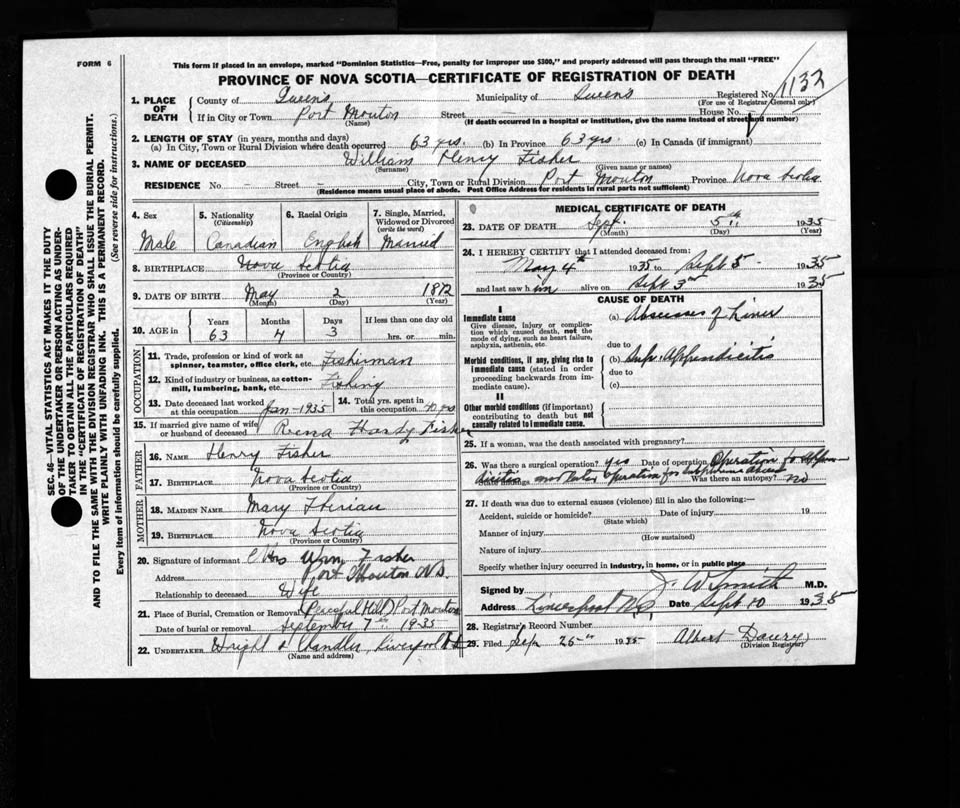 FORM 6
This form if placed in an envelope, marked "Dominion Statistics—Free, penalty for improper use $300," and properly addressed will pass through the mail "FREE"
PROVINCE OF NOVA SCOTIA—CERTIFICATE OF REGISTRATION OF DEATH
1132
1. PLACE OF DEATH County of Queens Municipality of Queens Registered No.
(For use of Registrar General only)
If in City or Town Port Mouton Street — House No. —
(Name) (If death occurred in a hospital or institution, give the name instead of street and number)
2. LENGTH OF STAY (in years, months and days)
(a) In City, Town or Rural Division where death occurred 63 yrs. (b) In Province 63 yrs. (c) In Canada (if immigrant)
3. NAME OF DECEASED William Henry Fisher
(Surname) (Given name or names)
RESIDENCE No. — Street — City, Town or Rural Division Port Mouton Province Nova Scotia
(Residence means usual place of abode. Post Office Address for residents in rural parts not sufficient)
4. Sex 5. Nationality (Citizenship) 6. Racial Origin 7. Single, Married, Widowed or Divorced (write the word)
Male Canadian English Married
8. BIRTHPLACE Nova Scotia
(Province or Country)
9. DATE OF BIRTH May 2 1872
(Month) (Day) (Year)
10. AGE in Years Months Days If less than one day old
63 4 3 hrs. or min.
OCCUPATION
11. Trade, profession or kind of work as spinner, teamster, office clerk, etc. Fisherman
12. Kind of industry or business, as cotton-mill, lumbering, bank, etc. Fishing
13. Date deceased last worked at this occupation Jan-1935 14. Total yrs. spent in this occupation
15. If married give name of wife or husband of deceased Rena Hardy Fisher
FATHER
16. NAME Henry Fisher
17. BIRTHPLACE Nova Scotia
(Province or Country)
MOTHER
18. MAIDEN NAME Mary
19. BIRTHPLACE Nova Scotia
(Province or Country)
20. Signature of informant Mrs Wm Fisher
Address Port Mouton N.S.
Relationship to deceased Wife
21. Place of Burial, Cremation or Removal Peaceful Hill, Port Mouton
Date of burial or removal September 7th 1935
22. UNDERTAKER Wright & Chandler, Liverpool N.S.
(Name and address)
MEDICAL CERTIFICATE OF DEATH
23. DATE OF DEATH Sept. 5th 1935
(Month) (Day) (Year)
24. I HEREBY CERTIFY that I attended deceased from:
May 4th 1935 to Sept 5 1935
and last saw him alive on Sept 3rd 1935
CAUSE OF DEATH
I
Immediate cause
Give disease, injury or complication which caused death, not the mode of dying, such as heart failure, asphyxia, asthenia, etc.
(a) Abscesses of Liver
due to
Morbid conditions, if any, giving rise to immediate cause (stated in order proceeding backwards from immediate cause).
(b) Sup. Appendicitis
due to
(c)
II
Other morbid conditions (if important) contributing to death but not causally related to immediate cause.
25. If a woman, was the death associated with pregnancy?
26. Was there a surgical operation? yes Date of operation Operation for Appendicitis
State findings and later operation for Was there an autopsy? no
27. If death was due to external causes (violence) fill in also the following:—
Accident, suicide or homicide? Date of injury 19
(State which)
Manner of injury
(How sustained)
Nature of injury
Specify whether injury occurred in industry, in home, or in public place
Signed by J. W. Smith M.D.
Address Liverpool N.S. Date Sept 10 1935
28. Registrar's Record Number
29. Filed Sep 26th 1935 Albert
(Division Registrar)
SEC. 46—VITAL STATISTICS ACT MAKES IT THE DUTY
OF THE UNDERTAKER OR PERSON ACTING AS UNDER-
TAKER TO OBTAIN ALL THE PARTICULARS REQUIRED
IN THE "CERTIFICATE OF REGISTRATION OF DEATH" (See reverse side for instructions.)
AND TO FILE THE SAME WITH THE DIVISION REGISTRAR WHO SHALL ISSUE THE BURIAL PERMIT.
WRITE PLAINLY WITH UNFADING INK. THIS IS A PERMANENT RECORD.
Every item of information should be carefully supplied.